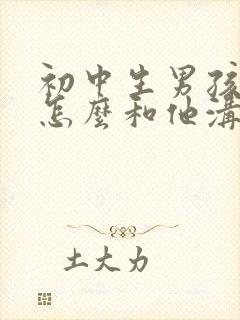 初中生男孩
怎麼和他溝
土大力